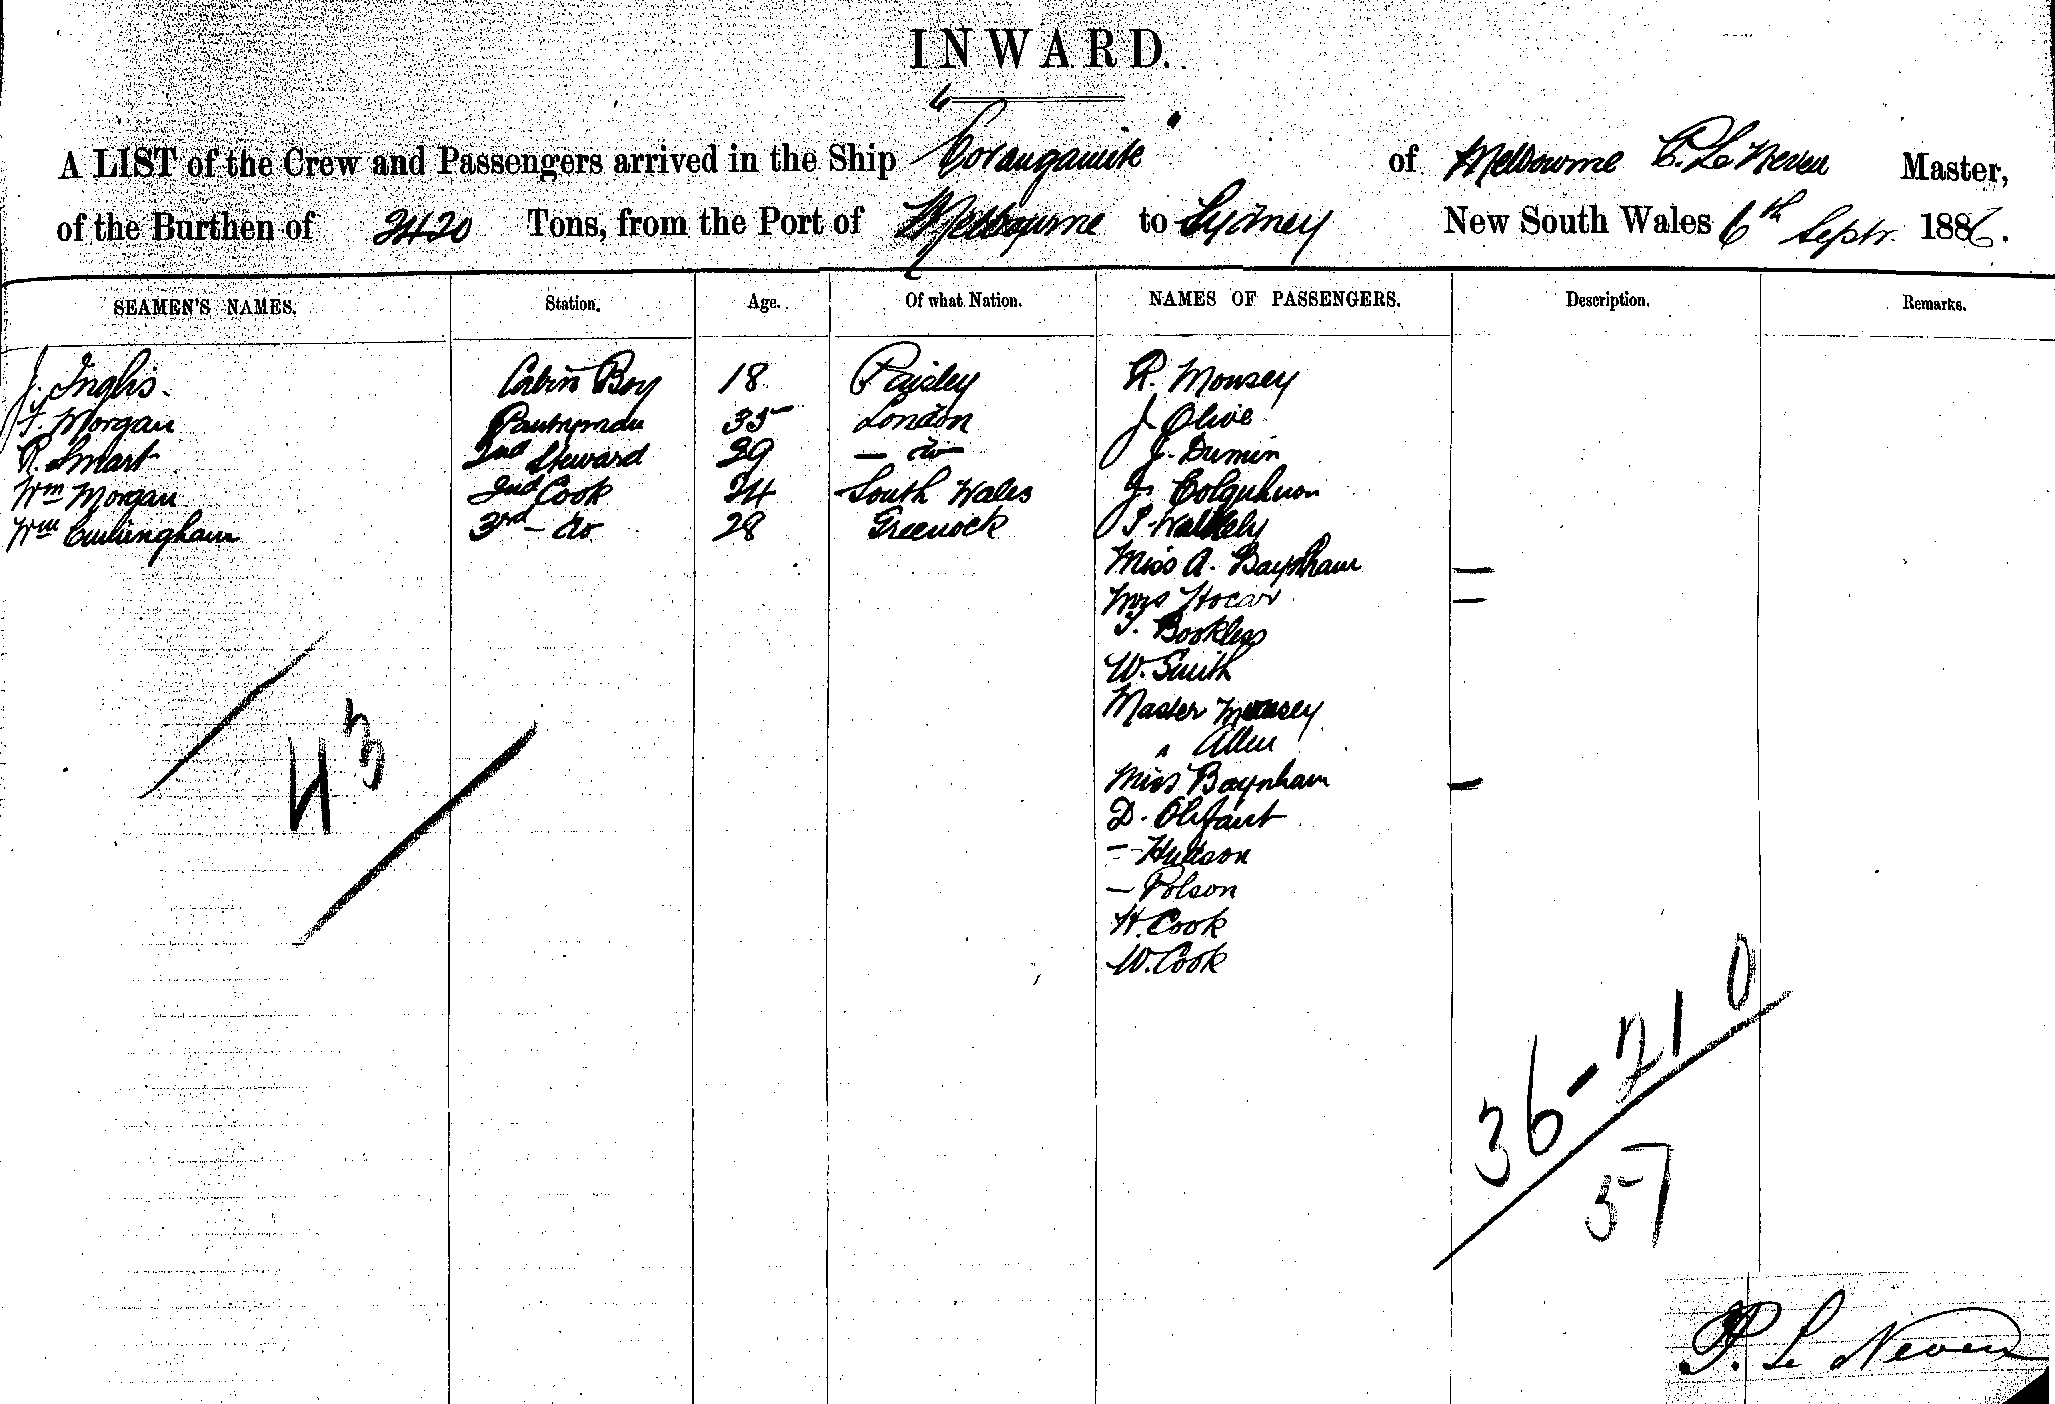 INWARD.
A LIST of the Crew and Passengers arrived in the Ship "Corangamite" of Melbourne P. Le Neven Master,
of the Burthen of 2420 Tons, from the Port of Melbourne to Sydney New South Wales 6th Septr. 1886.
SEAMEN'S NAMES. Station. Age. Of what Nation. NAMES OF PASSENGERS. Description. Remarks.
J. Inglis Cabin Boy 18 Paisley R. Mousey
T. Morgan Pantryman 35 London J Olive
R. Smart 2nd Steward 29 — do — J. Dumin
Wm Morgan 2nd Cook 24 South Wales J. Colquhuon
Wm Cunningham 3rd — do 28 Greenock
Miss A. Baynham —
Mrs —
T. Bookless
W. Smith
Master Mousey
" Allen
Miss Baynham —
D. Olifant
— Hudson
— Polson
H. Cook
W. Cook
43
36-21 0
57
P. Le Neven